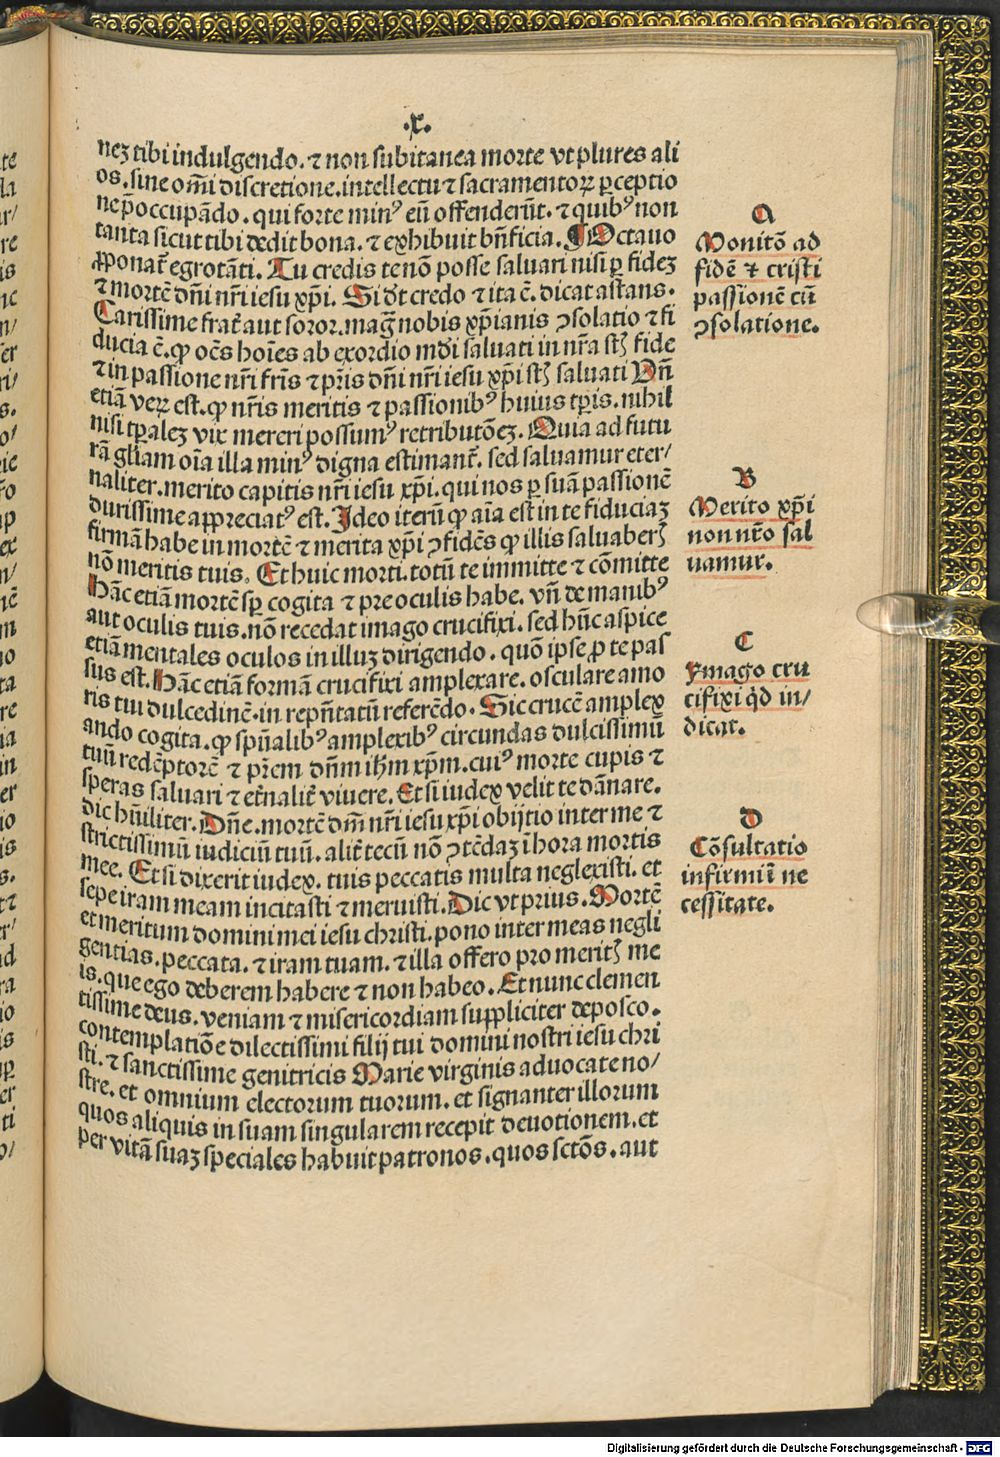 .x.
neȝ tibi indulgendo. ⁊ non subitanea morte vt plures ali
os. sine om̄i discretione. intellectu ⁊ sacramentoꝝ ꝑceptio
ne p̄occupādo. qui forte minꝰ eū offenderūt. ⁊ quibꝰ non
tanta sicut tibi dedit bona. ⁊ exhibuit bn̄ficia. ¶ Octauo
ꝓponat̄ egrotāti. Tu credis te nō posse saluari nisi ꝑ fideȝ
⁊ mortē dn̄i nr̄i iesu xp̄i. Si dt̄ credo ⁊ ita ē. dicat astans.
Carissime frat̄ aut soror. mag̅ nobis xp̄ianis ꝯsolatio ⁊ fi
ducia ē. ꝙ oēs hoīes ab exordio mūdi saluati in nr̄a st̄ fide
⁊ in passione nr̄i fr̄is ⁊ pr̄is dn̄i nr̄i iesu xp̄i st̄ saluati Vn̄
etiā veꝝ est. ꝙ nr̄is meritis ⁊ passionibꝰ huius tꝑis. nihil
nisi tꝑaleȝ vix mereri possumꝰ retributōeȝ. Quia ad futu
rā gl̄iam oīa illa minꝰ digna estimant̄. sed saluamur eter/
naliter. merito capitis nr̄i iesu xp̄i. qui nos ꝑ suā passionē
durissime appreciatꝰ est. Ideo iterū ꝙ aīa est in te fiduciaȝ
firmā habe in mortē ⁊ merita xp̄i ꝯfidēs ꝙ illis saluaber̄
nō meritis tuis. Et huic morti. totū te immitte ⁊ cōmitte
Hāc etiā mortē sꝑ cogita ⁊ pre oculis habe. vn̄ de manibꝰ
aut oculis tuis. nō recedat imago crucifixi. sed hūc aspice
etiā mentales oculos in illuȝ dirigendo. quō ipse ꝓ te pas
sus est. Hāc etiā formā crucifixi amplexare. osculare amo
ris tui dulcedinē. in repn̄tatū referēdo. Sic crucē amplex
ando cogita. ꝙ spūalibꝰ amplexibꝰ circundas dulcissimū
tuū redēptorē ⁊ pr̄em dn̄m ih̄m xp̄m. cuiꝰ morte cupis ⁊
speras saluari ⁊ et̄nalit̄ viuere. Et si iudex velit te dānare.
dic hūiliter. Dn̄e. mortē dn̄i nr̄i iesu xp̄i obijtio inter me ⁊
strictissimū iudiciū tuū. alit̄ tecū nō ꝯtēdaȝ ī hora mortis
mee. Et si dixerit iudex. tuis peccatis multa neglexisti. et
sepe iram meam incitasti ⁊ meruisti. Dic vt prius. Mortē
et meritum domini mei iesu christi. pono inter meas negli
gentias. peccata. ⁊ iram tuam. ⁊ illa offero pro merit̄ me
is. que ego deberem habere ⁊ non habeo. Et nunc clemen
tissime deus. veniam ⁊ misericordiam suppliciter deposco.
contemplatiōe dilectissimi filij tui domini nostri iesu chri
sti. ⁊ sanctissime genitricis Marie virginis aduocate no/
stre. et omnium electorum tuorum. et signanter illorum
quos aliquis in suam singularem recepit deuotionem. et
per vitā suaȝ speciales habuit patronos. quos sctōs. aut
A
Monitō ad
fidē ⁊ cristi
passionē cū
ꝯsolatione.
B
Merito xp̄i
non nr̄o sal
uamur.
C
Ymago cru
cifixi qd̄ in/
dicat.
D
Cōsultatio
infirmi ī ne
cessitate.
Digitalisierung gefördert durch die Deutsche Forschungsgemeinschaft - DFG